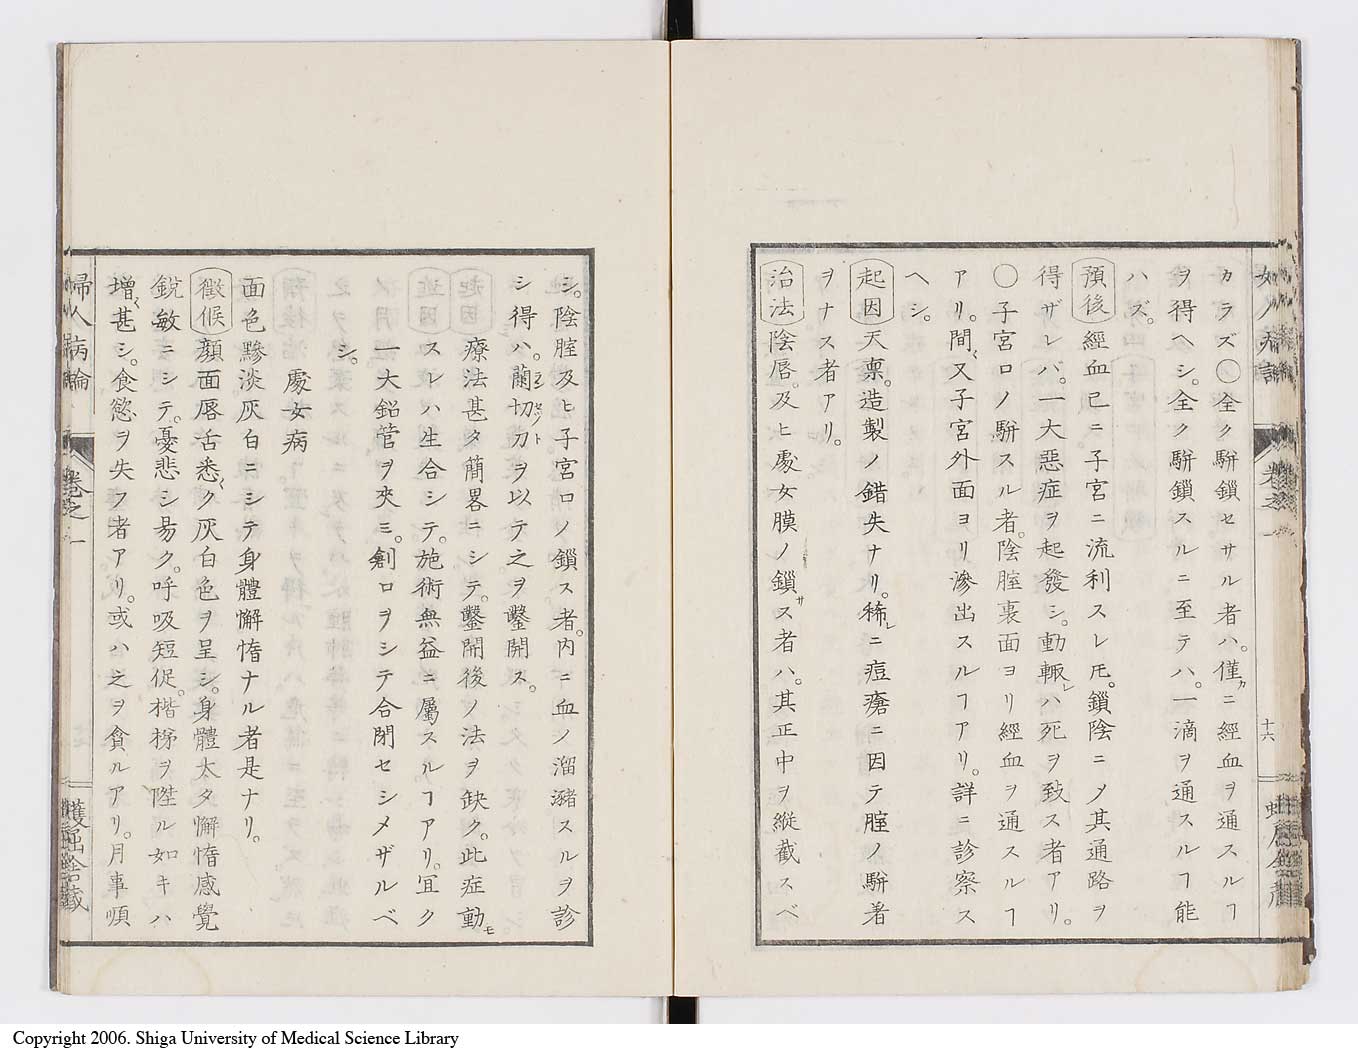 カラズ〇全ク駢鎖セサル者ハ。僅カニ經血ヲ通スルヿ
ヲ得ヘシ。全ク駢鎖スルニ至テハ。一滴ヲ通スルヿ能
ハズ。
預後 經血已ニ子宮ニ流利スレ𪜈。鎖陰ニ乄其通路ヲ
得ザレバ。一大惡症ヲ起發シ。動輙レハ死ヲ致ス者アリ。
〇子宮口ノ駢スル者。陰腟裏面ヨリ經血ヲ通スルヿ
アリ。間〻又子宮外面ヨリ滲出スルヿアリ。詳ニ診察ス
ヘシ。
起因 天稟。造製ノ錯失ナリ。稀レニ痘瘡ニ因テ腟ノ駢着
ヲナス者アリ。
治法 陰唇。及ヒ處女膜ノ鎖サス者ハ。其正中ヲ縱截スベ
十六
シ。陰腟及ヒ子宮口ノ鎖ス者。内ニ血ノ溜瀦スルヲ診
シ得ハ。蘭切刀ランセットヲ以テ之ヲ鑿開ス。
療法甚タ簡畧ニシテ。鑿開後ノ法ヲ缺ク。此症動モ
スレハ生合シテ。施術無益ニ屬スルヿアリ。冝ク
一大鉛管ヲ夾ミ。創口ヲシテ合閉セシメザルベ
シ。
處女病
面色黲淡灰白ニシテ身體懈惰ナル者是ナリ。
徴候 顔面唇舌悉ク灰白色ヲ呈シ。身體太タ懈惰感覺
鋭敏ニシテ。憂悲シ易ク。呼吸短促。楷梯ヲ陞ル如キハ
増〻甚シ。食慾ヲ失フ者アリ。或ハ之ヲ貪ルアリ。月事順
婦人病論
卷之一
Copyright 2006. Shiga University of Medical Science Library